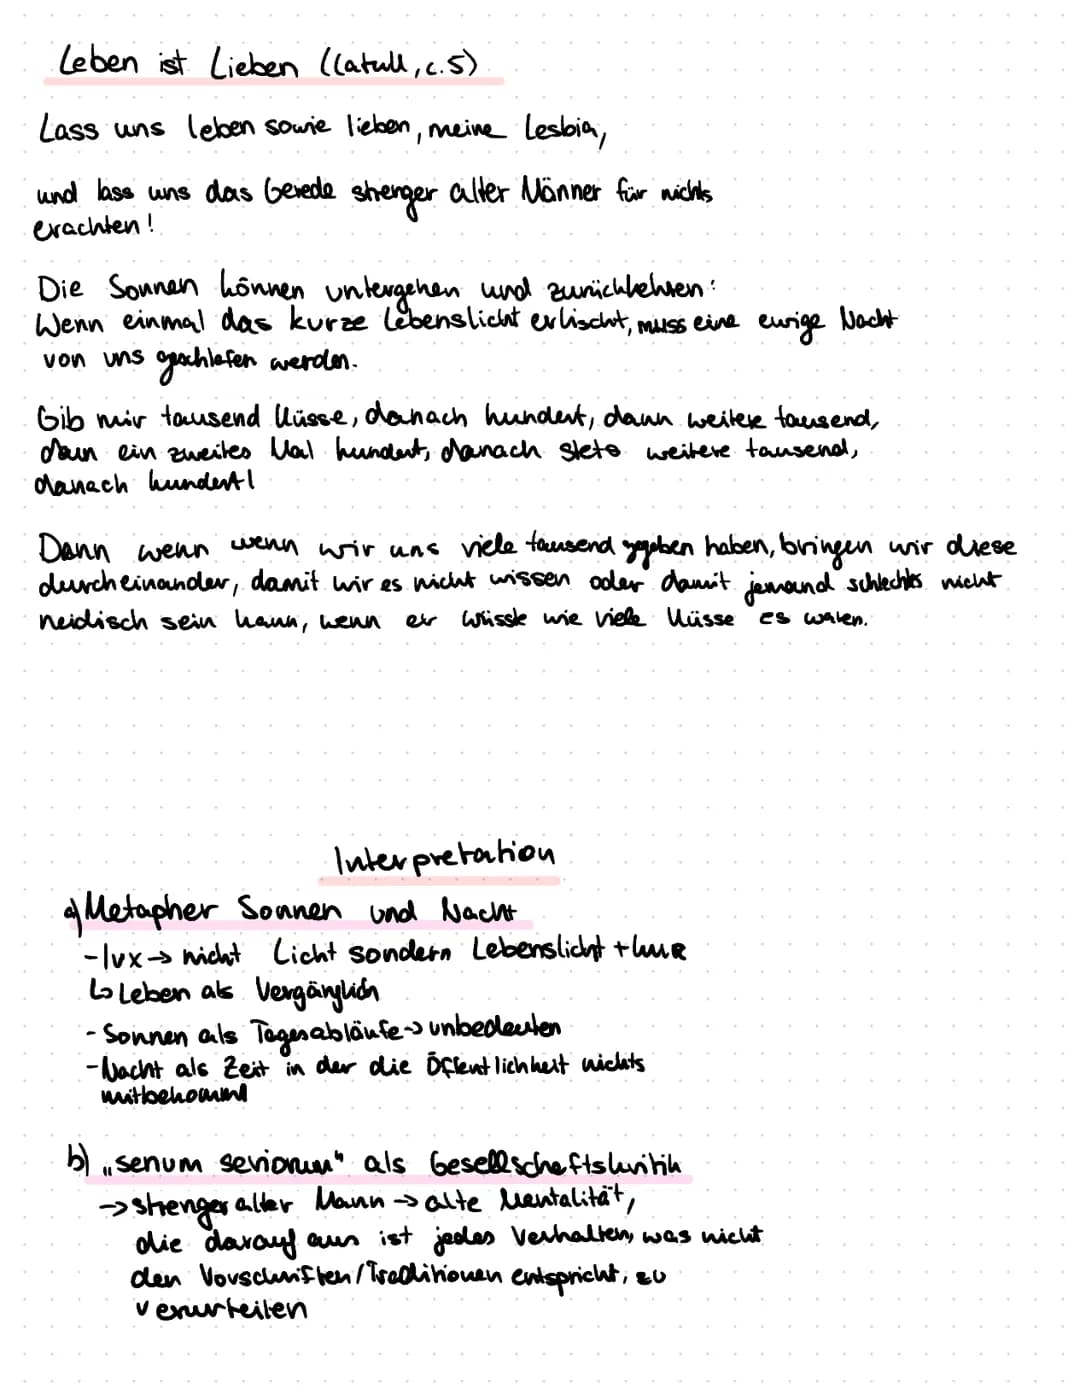 Leben ist Lieben (Catull, c.5)
Lass uns leben sowie lieben, meine Lesbia,
und lass uns das Gerede strenger alter Männer für nichts
erachten!
Die Sonnen können untergehen und zurückkehren:
Wenn einmal das kurze Lebenslicht erlischt, muss eine ewige Nacht
von uns geschlafen werden.
Gib mir tausend Küsse, danach hundert, dann weitere tausend,
dann ein zweites Mal hundert, danach stets weitere tausend,
danach hundert!
Dann wenn wenn wir uns viele tausend gegeben haben, bringen wir diese
durcheinander, damit wir es nicht wissen oder damit jemand schlechtes nicht
neidisch sein kann, wenn er wüsste wie viele Küsse es waren.
Interpretation
a) Metapher Sonnen und Nacht
-lux → nicht Licht sondern Lebenslicht +
↳ Leben als Vergänglich
- Sonnen als Tagesabläufe → unbedeuten
- Nacht als Zeit in der die Öffentlichkeit nichts
mitbekommt
b) „senum severiorum" als Gesellschaftskritik
→ strenger alter Mann → alte Mentalität,
die darauf aus ist jedes Verhalten, was nicht
den Vorschriften/Traditionen entspricht, zu
verurteilen